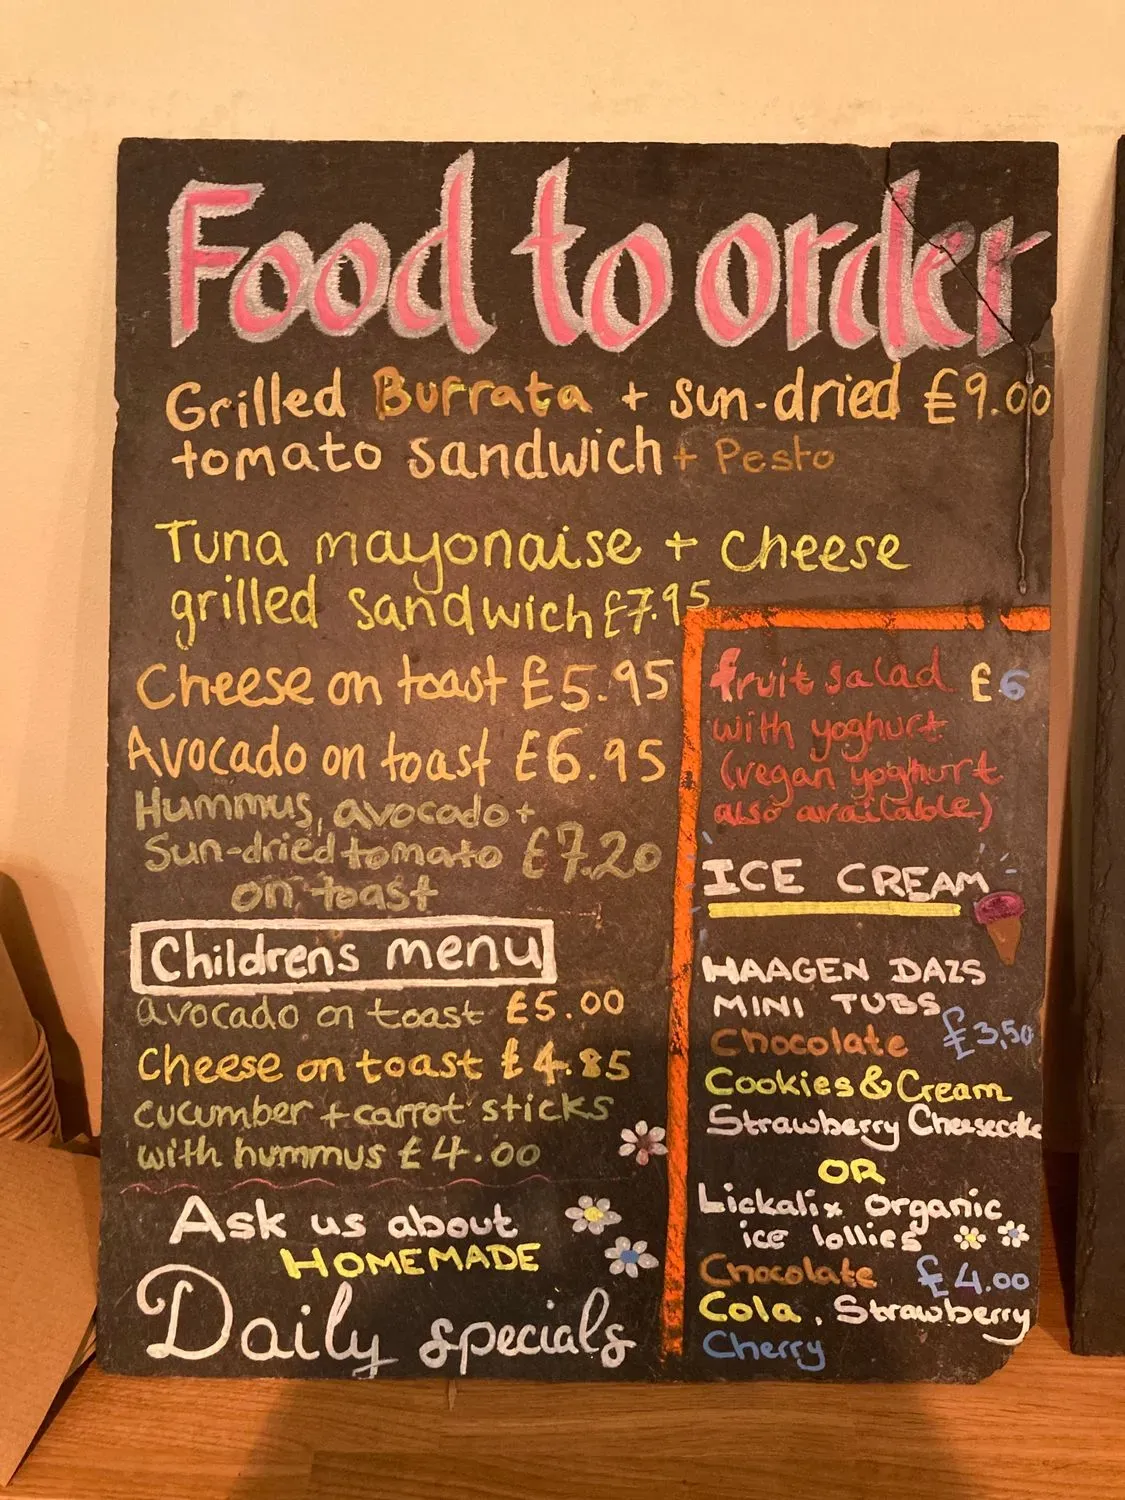 Food to order
Grilled Burrata + sun-dried £9.00
tomato sandwich + Pesto
Tuna mayonaise + cheese
grilled sandwich £7.95
Cheese on toast £5.95
Avocado on toast £6.95
Hummus, avocado +
Sun-dried tomato £7.20
on toast
Childrens menu
avocado on toast £5.00
Cheese on toast £4.85
cucumber + carrot sticks
with hummus £4.00
Ask us about
HOMEMADE
Daily specials
fruit salad £6
with yoghurt
(vegan yoghurt
also available)
ICE CREAM
HAAGEN DAZS
MINI TUBS
Chocolate £3,50
Cookies & Cream
Strawberry Cheesecake
OR
Lickalix organic
ice lollies
Chocolate £4.00
Cola, Strawberry
Cherry